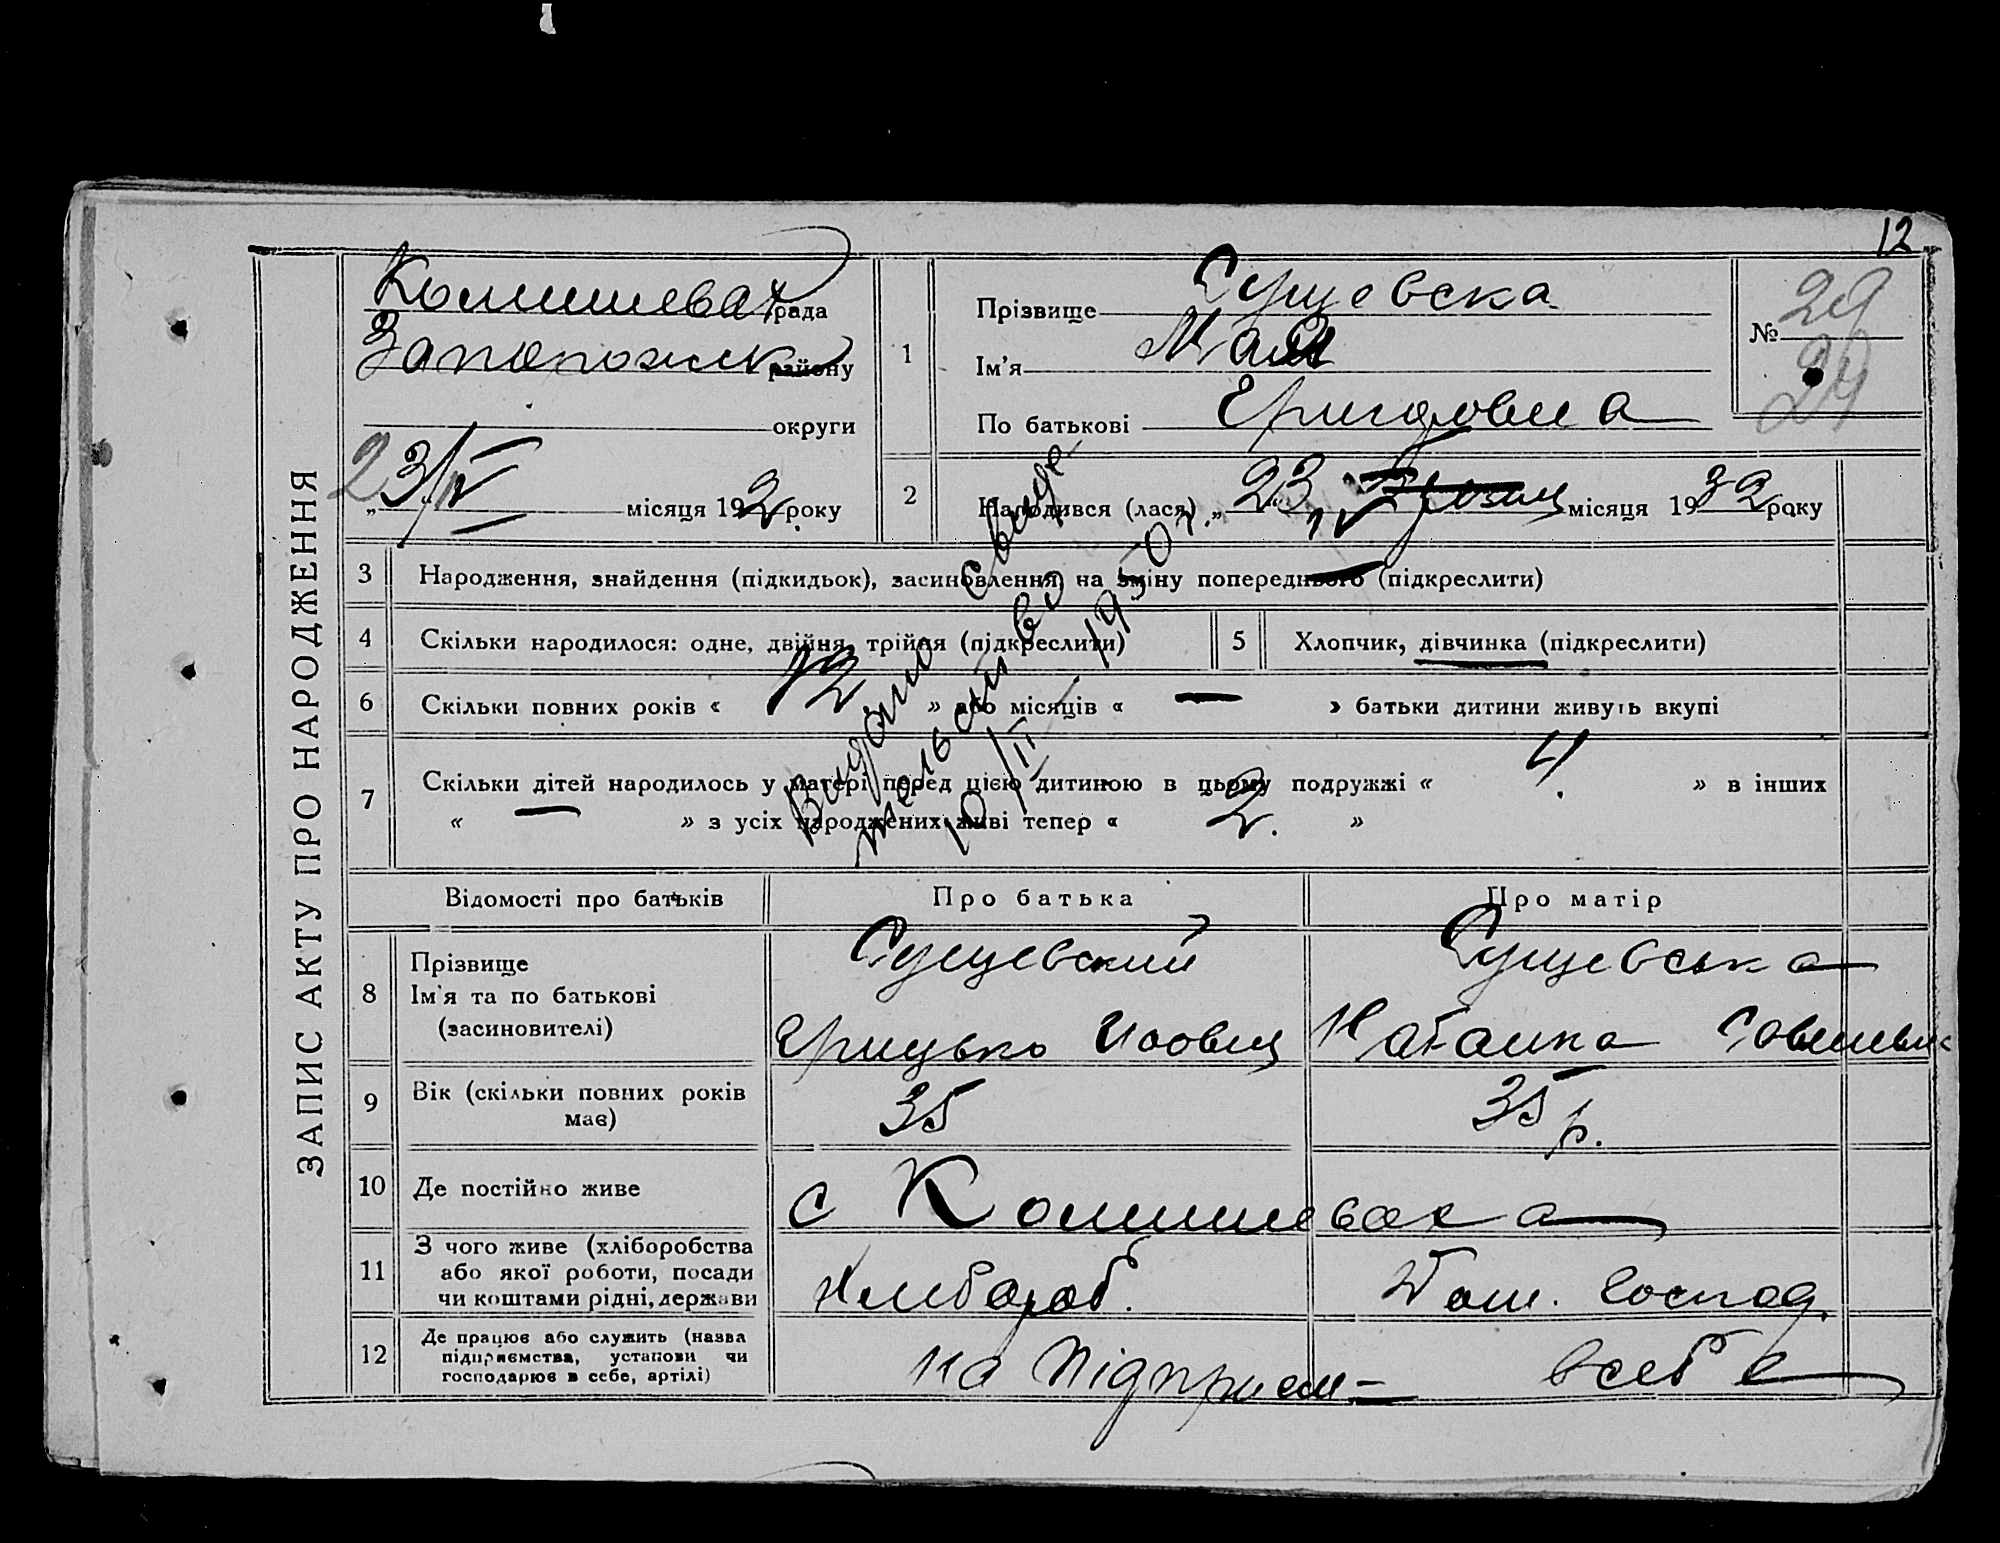 12
ЗАПИС АКТУ ПРО НАРОДЖЕННЯ
Комишевах рада
Запорожск району
округи
„23/IV місяця 1932 року
1
Прізвище Сущевска
Ім'я Мая
По батькові Грицовна
№ 29
29
2
Народився (лася) „23, IV місяця 1932 року
3
Народження, знайдення (підкидьок), засиновлення, на зміну попереднього (підкреслити)
4
Скільки народилося: одне, двійня, трійня (підкреслити)
5
Хлопчик, дівчинка (підкреслити)
6
Скільки повних років « 12 » або місяців « — » батьки дитини живуть вкупі
7
Скільки дітей народилось у матері перед цією дитиною в цьому подружжі « 4. » в інших
« — » з усіх народжених живі тепер « 2. »
Видано свиде
тельство
10/II - 1950 г.
Відомості про батьків
Про батька
Про матір
8
Прізвище
Ім'я та по батькові
(засиновителі)
Сущевский
Грицько
Сущевська
Наталка
9
Вік (скільки повних років
має)
35
35 р.
10
Де постійно живе
с Комишеваха
11
З чого живе (хліборобства
або якої роботи, посади
чи коштами рідні, держави
Хлибороб.
Дом. господ.
12
Де працює або служить (назва
підприємства, установи чи
господарює в себе, артілі)
на підприєм-
всебе